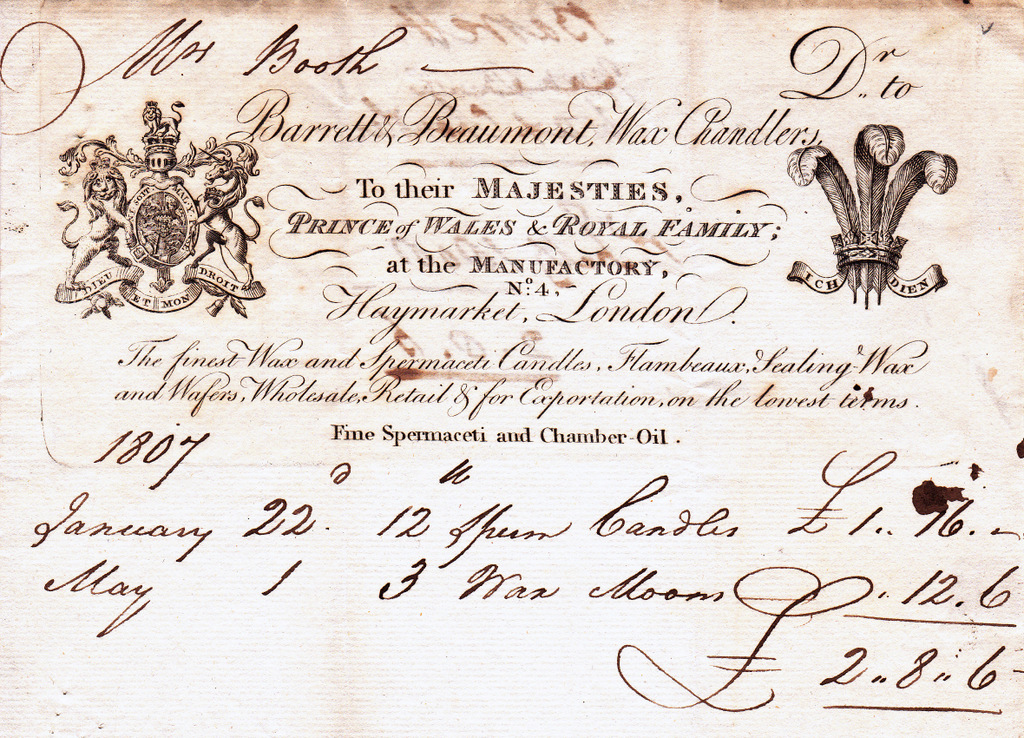 Mrs Booth
Dr.. to
Barrett & Beaumont, Wax Chandlers,
To their MAJESTIES,
PRINCE of WALES & ROYAL FAMILY;
at the MANUFACTORY,
No. 4,
Haymarket, London.
SOIT MAL Y
DIEU ET MON DROIT
ICH DIEN
The finest Wax and Spermaceti Candles, Flambeaux, Sealing-Wax
and Wafers, Wholesale, Retail & for Exportation, on the lowest terms.
Fine Spermaceti and Chamber-Oil.
1807
January 22d. 12 lb Sperm Candles £ 1.. 16. –
May 1 3 Wax Moons .. 12. 6
£ 2.. 8.. 6